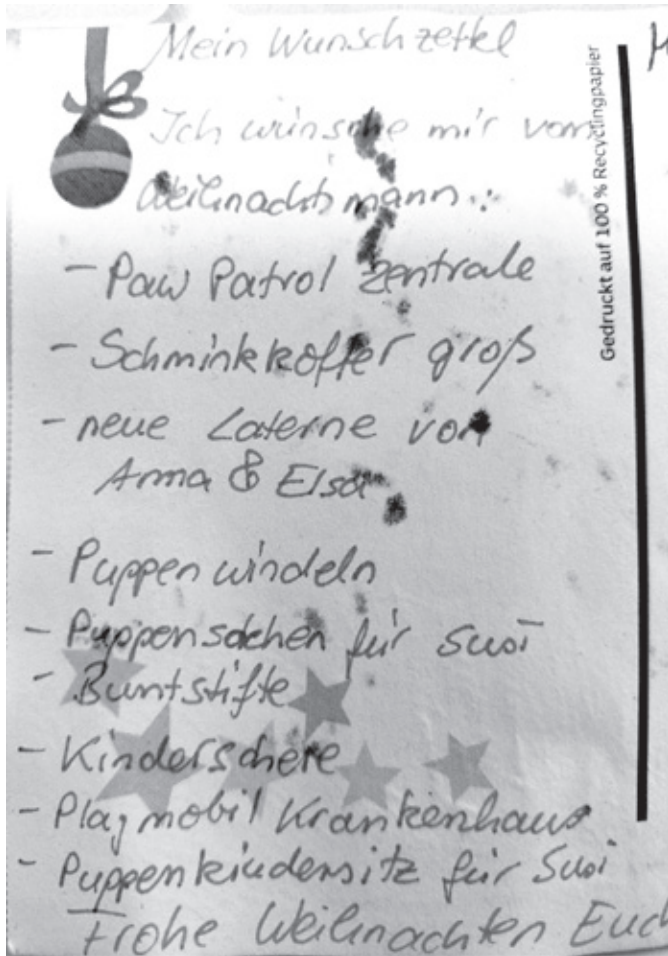 Mein Wunschzettel
Ich wünsche mir vom
Weihnachtsmann:
- Paw Patrol Zentrale
- Schminkkoffer groß
- neue Laterne von
Anna & Elsa
- Puppenwindeln
- Puppensachen für Susi
- Buntstifte
- Kinderschere
- Playmobil Krankenhaus
- Puppenkindersitz für Susi
Frohe Weihnachten Euch
Gedruckt auf 100 % Recyclingpapier